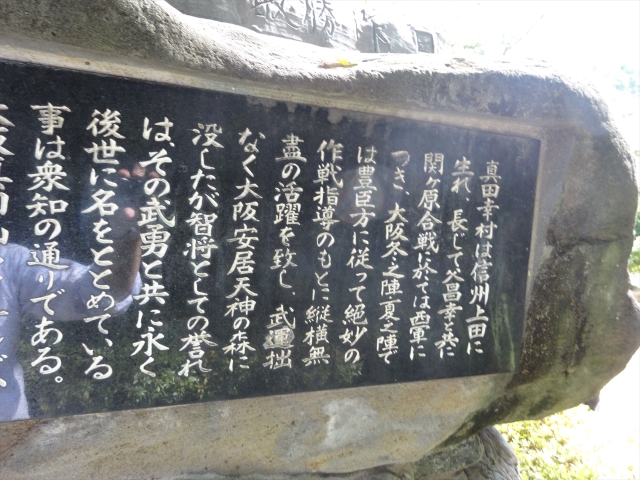 真田幸村は信州上田に
生れ、長じて父昌幸と共に
関ヶ原合戦に於ては西軍に
つき、大阪冬之陣・夏之陣で
は豊臣方に従って絶妙の
作戦指導のもとに縦横無
盡の活躍を致し、武運拙
なく大阪安居天神の森に
没したが智将としての誉れ
は、その武勇と共に永く
後世に名をとどめている
事は衆知の通りである。